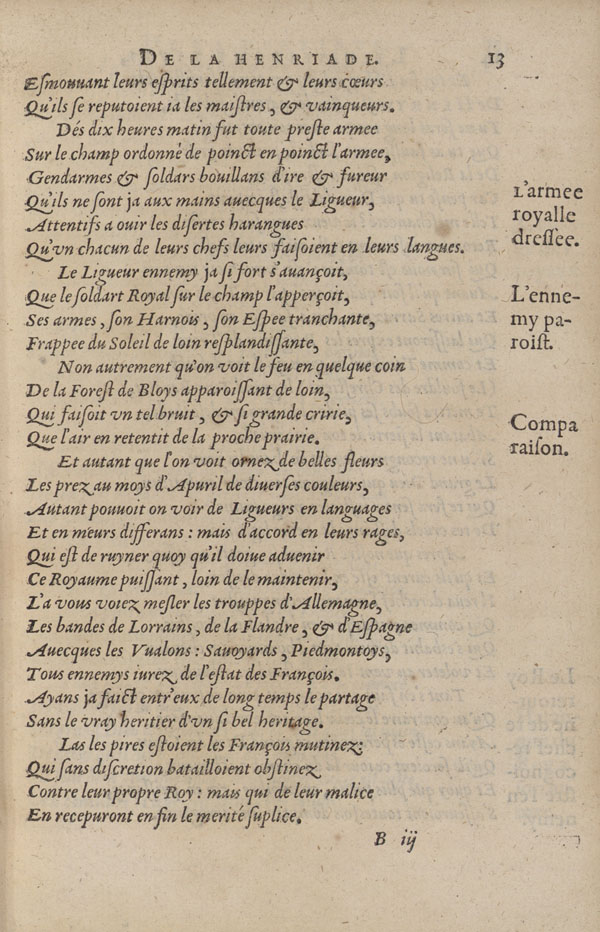 DE LA HENRIADE. 13
Esmouuant leurs esprits tellement & leurs cœurs
Qu'ils se reputoient ia les maistres, & vainqueurs.
Dés dix heures matin fut toute preste armee
Sur le champ ordonné de poinct en poinct l'armee,
Gendarmes & soldars bouillans d'ire & fureur
Qu'ils ne sont ja aux mains auecques le Ligueur,
Attentifs a ouir les disertes harangues
Qu'vn chacun de leurs chefs leurs faisoient en leurs langues.
L'armee
royalle
dressee.
Le Ligueur ennemy ja si fort s'auançoit,
Que le soldart Royal sur le champ l'apperçoit,
Ses armes, son Harnois, son Espee tranchante,
Frappee du Soleil de loin resplandissante,
L'enne-
my pa-
roist.
Non autrement qu'on voit le feu en quelque coin
De la Forest de Bloys apparoissant de loin,
Qui faisoit vn tel bruit, & si grande cririe,
Que l'air en retentit de la proche prairie.
Compa
raison.
Et autant que l'on voit ornez de belles fleurs
Les prez au moys d'Apuril de diuerses couleurs,
Autant pouuoit on voir de Ligueurs en languages
Et en meurs differans : mais d'accord en leurs rages,
Qui est de ruyner quoy qu'il doiue aduenir
Ce Royaume puissant, loin de le maintenir,
L'a vous voiez mesler les trouppes d'Allemagne,
Les bandes de Lorrains, de la Flandre, & d'Espagne
Auecques les Vualons : Sauoyards, Piedmontoys,
Tous ennemys iurez de l'estat des François.
Ayans ja faict entr'eux de long temps le partage
Sans le vray heritier d'vn si bel heritage.
Las les pires estoient les François mutinez:
Qui sans discretion batailloient obstinez
Contre leur propre Roy : mais qui de leur malice
En recepuront en fin le merité suplice.
B iij